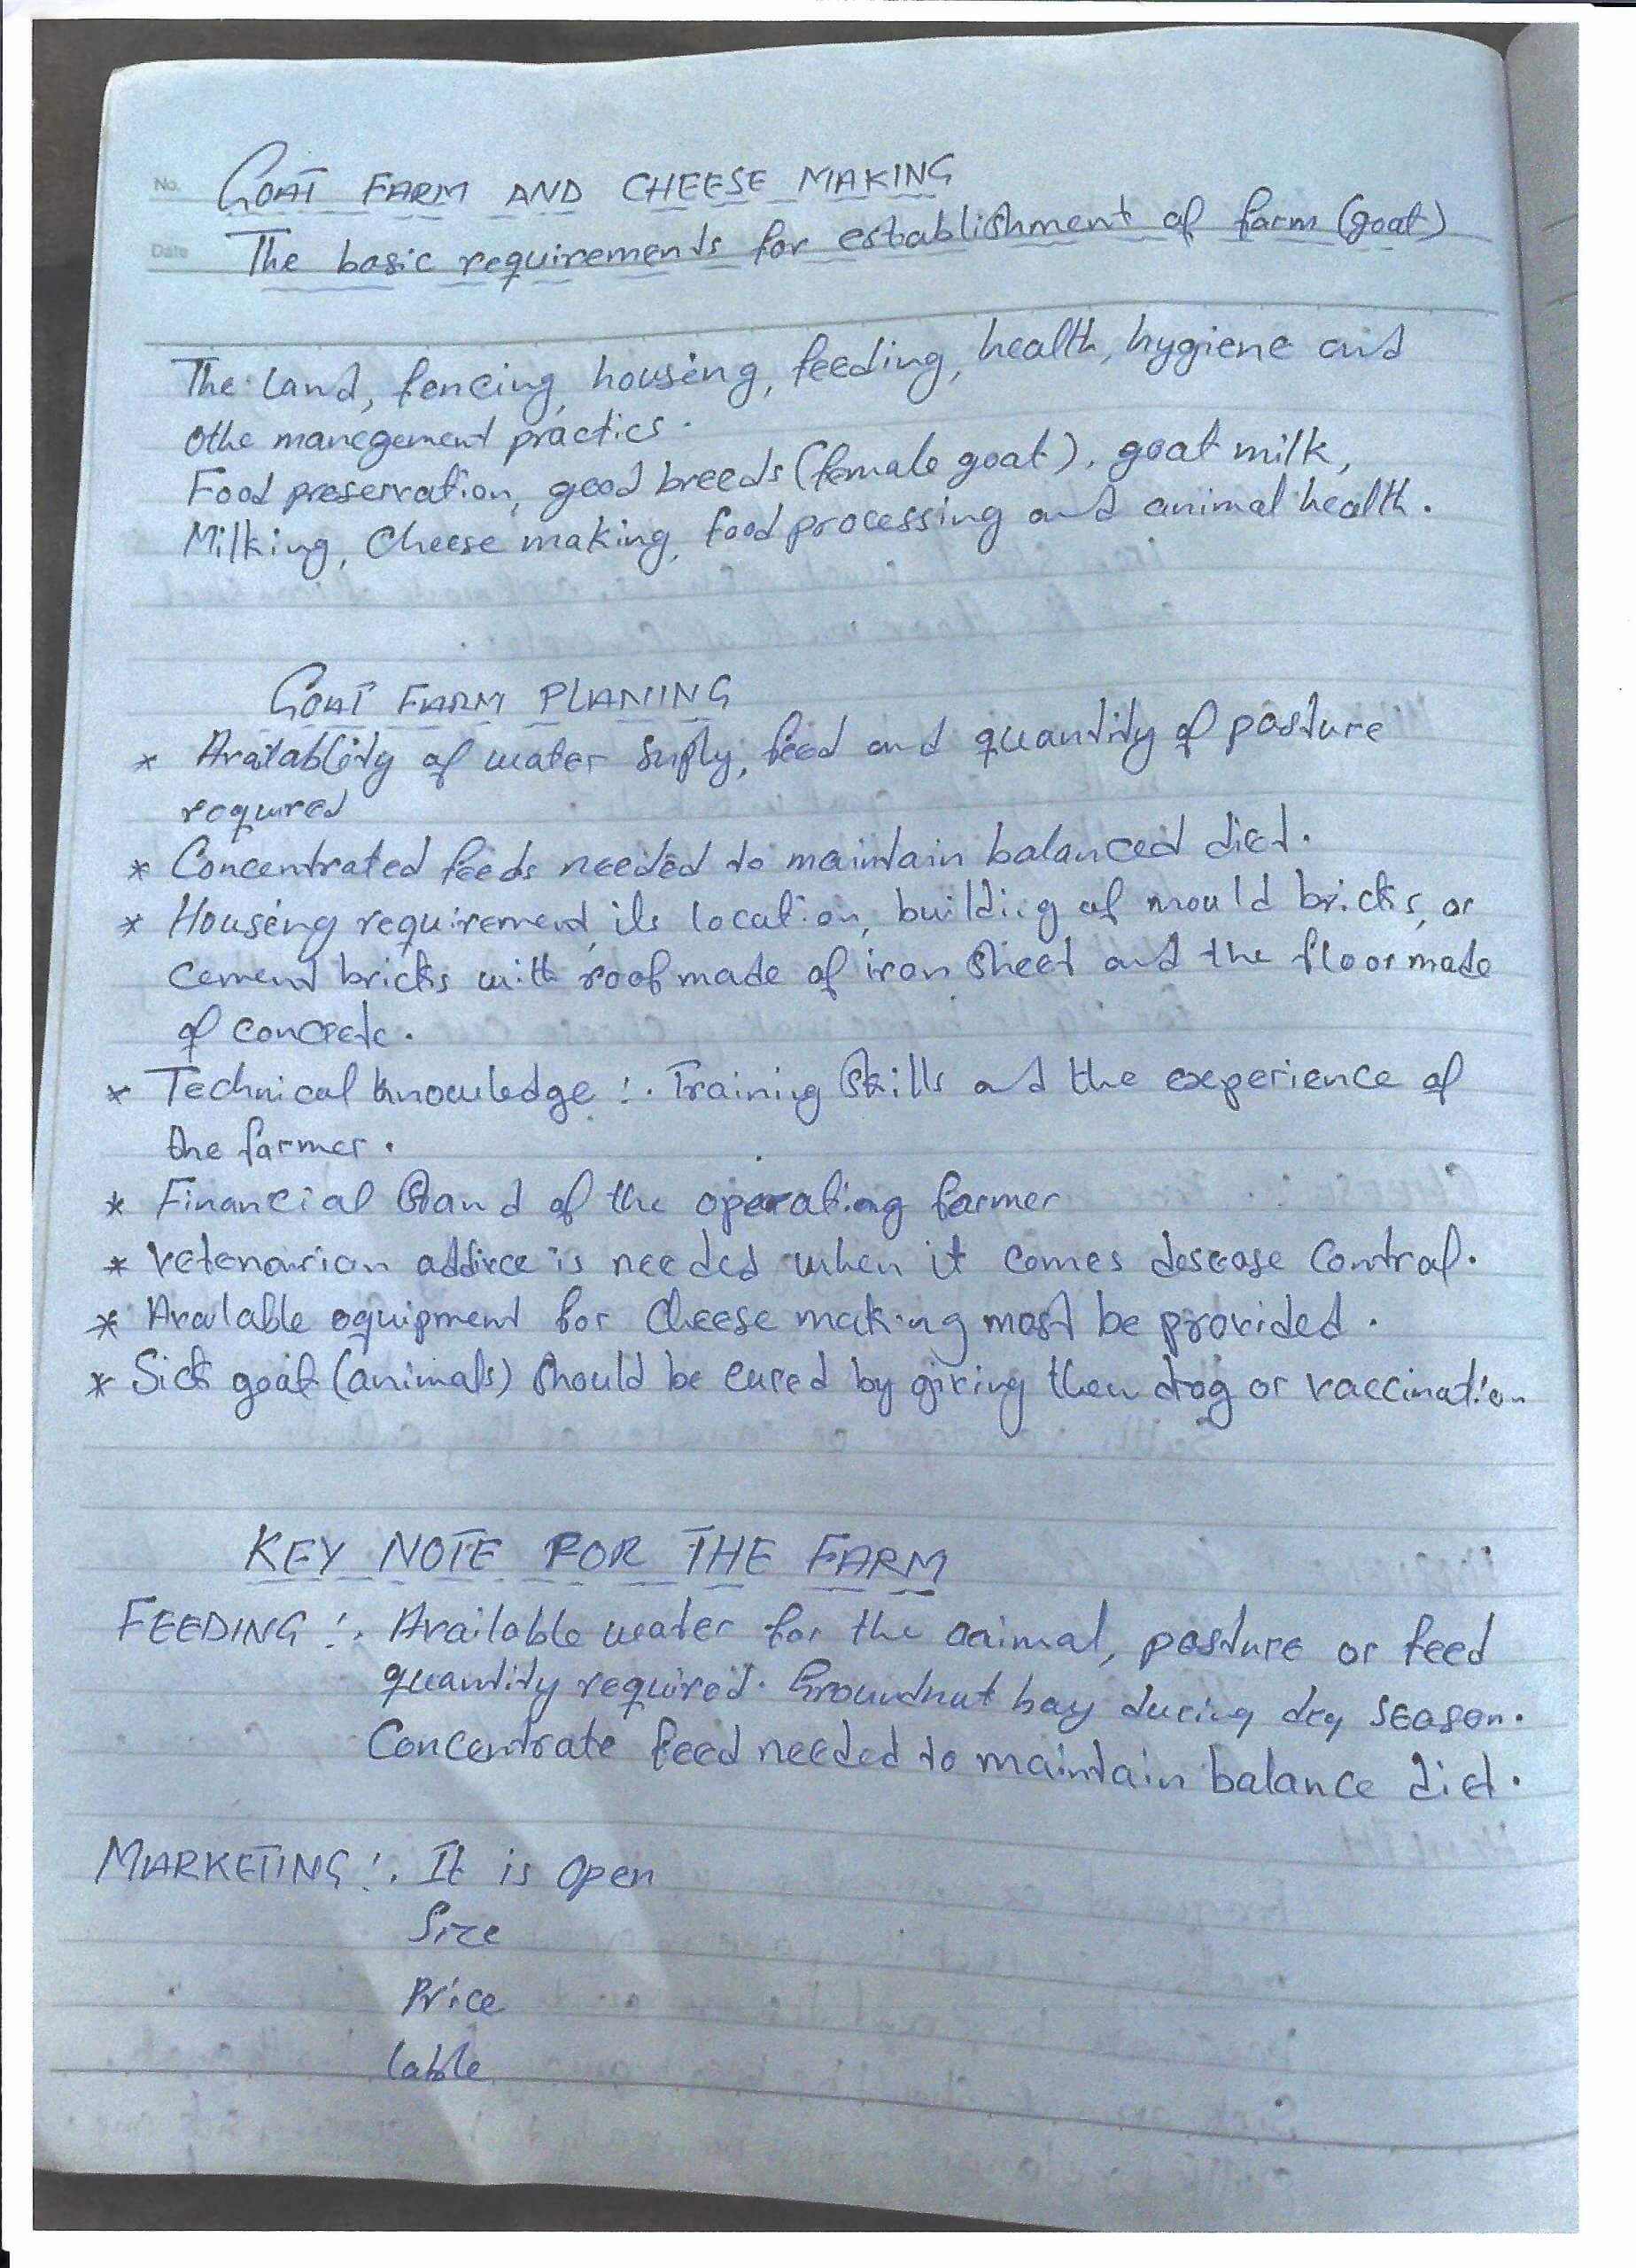 No.
GOAT FARM AND CHEESE MAKING
Date
The basic requirements for establishment of farm (goat)
The land, fencing, housing, feeding, health, hygiene and
Othe manegement practics.
Food preservation, good breeds (female goat), goat milk,
Milking, Cheese making, food processing and animal health.
GOAT FARM PLANING
* Availablity of water suply, feed and quantity of pasture
required
* Concentrated feeds needed to maintain balanced diet.
* Housing requirement, its location, building of mould bricks, or
cement bricks with roof made of iron sheet and the floor made
of concrete.
* Technical knowledge :. Training skills and the experience of
the farmer.
* Financial stand of the operating farmer
* Vetenarian addivce is needed when it comes desease control.
* Avalable equipment for cheese making most be provided.
* Sick goat (animals) should be cured by giving them drog or vaccination
KEY NOTE FOR THE FARM
FEEDING :. Available water for the animal, pasture or feed
quantity required. Groundnut hay during dry season.
Concentrate feed needed to maintain balance diet.
MARKETING :. It is open
Size
Price
lable